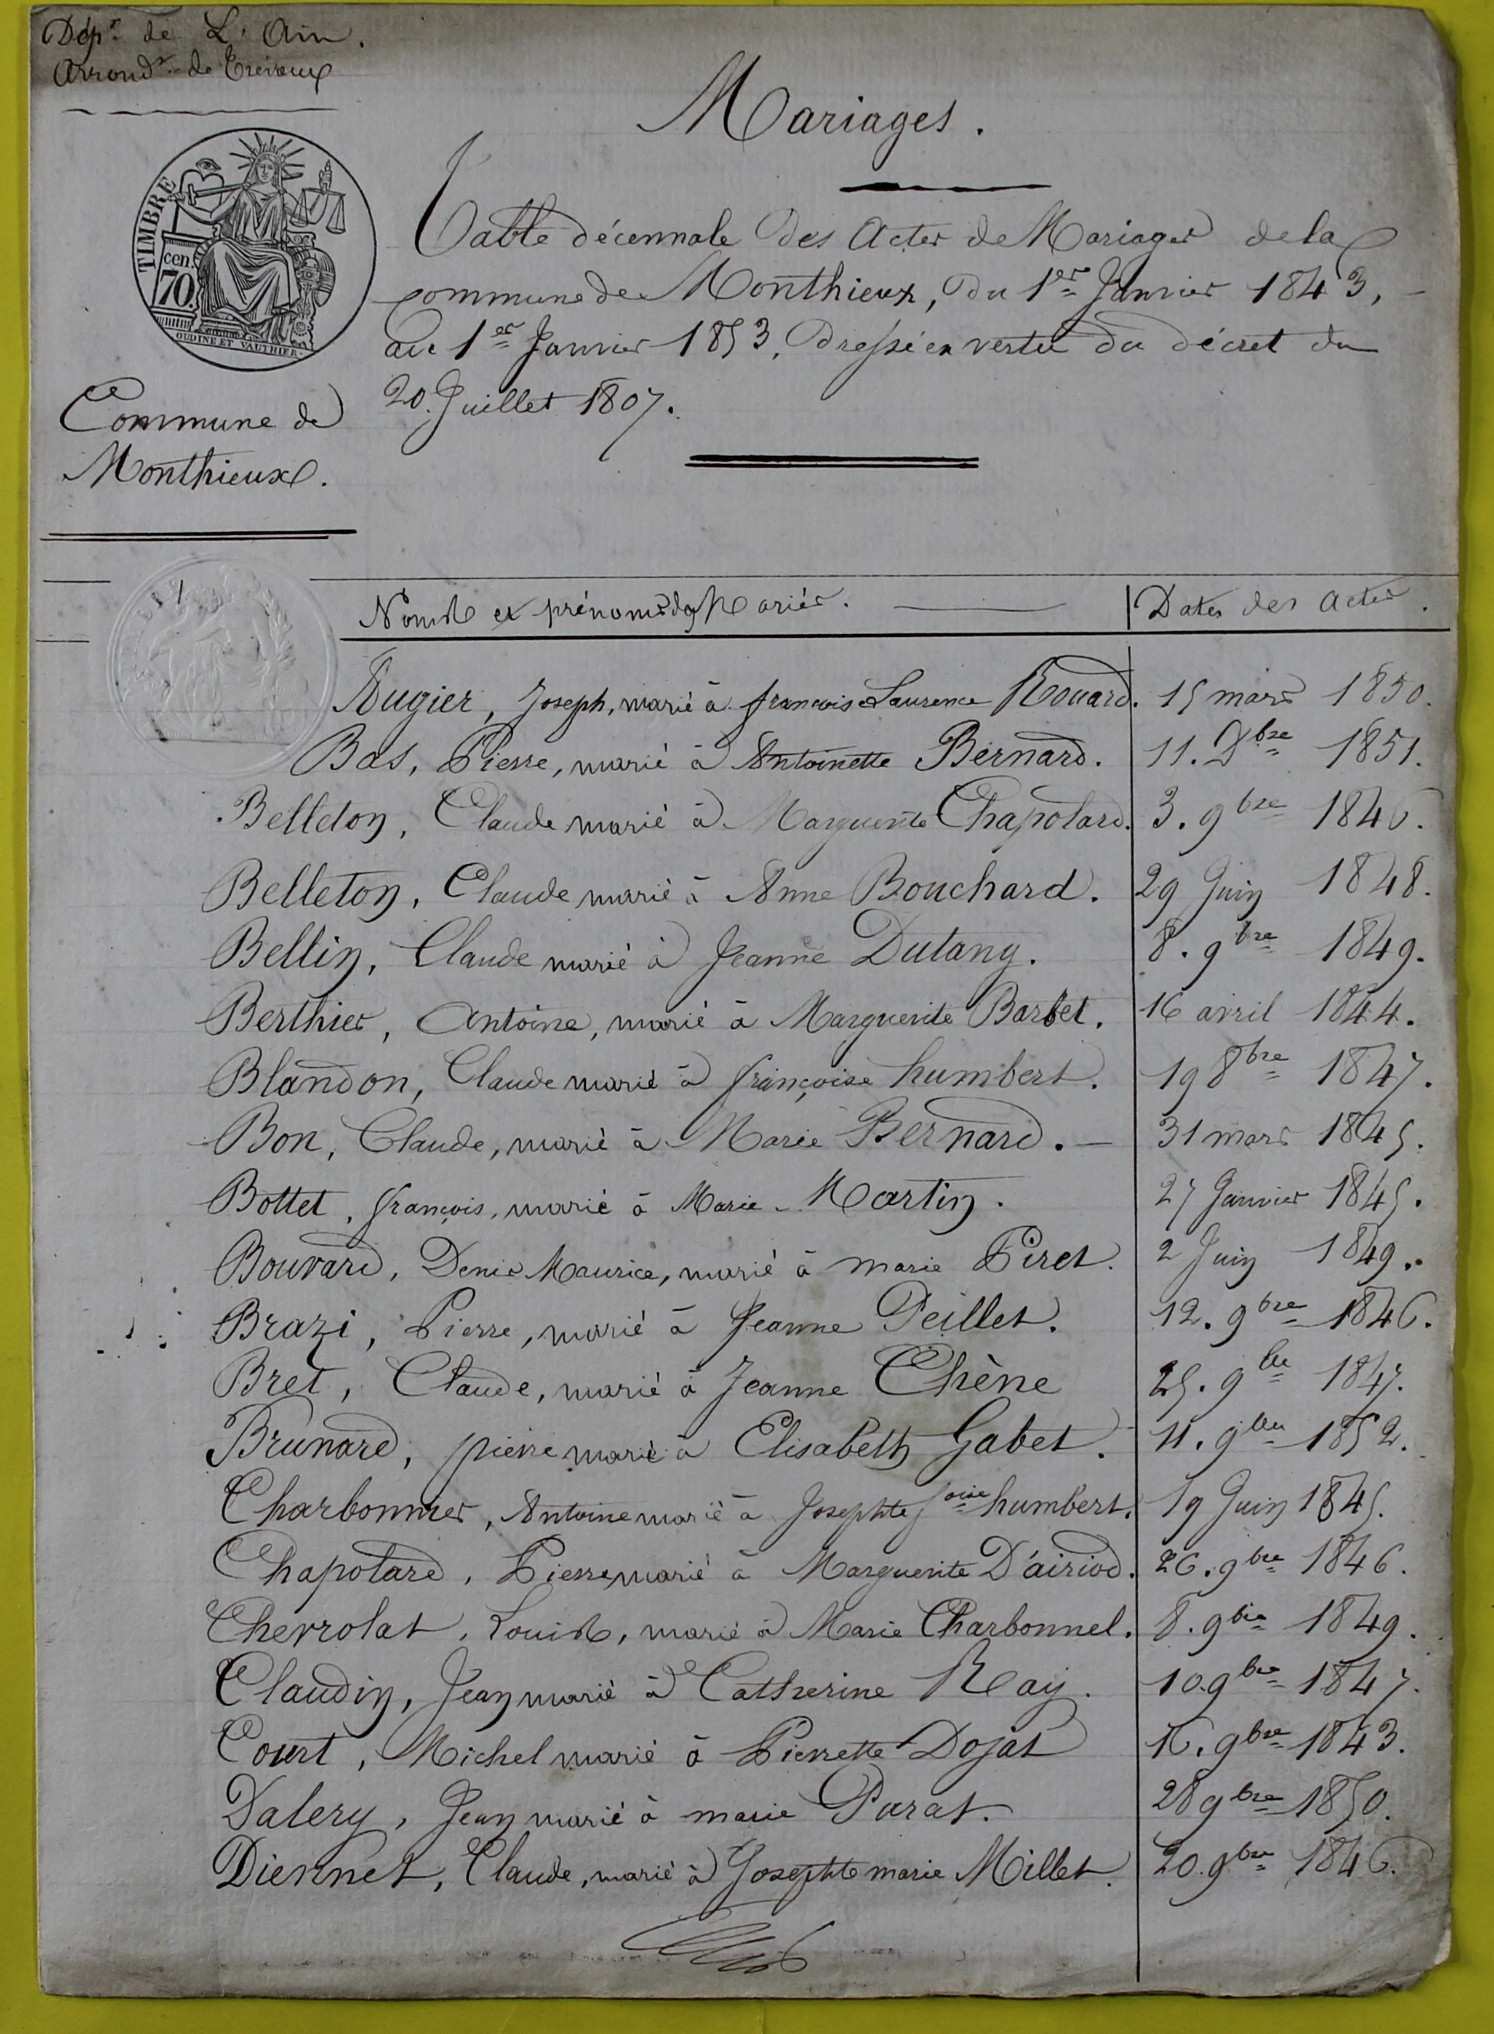 Dépt. de L'Ain.
Arrondt. de Trévoux
Mariages.
TIMBRE
cen.
70
OUDINÉ ET VAUTHIER
Table décennale des Actes de Mariages de la
commune de Monthieux, du 1er Janvier 1843,
au 1er Janvier 1853, dressée en vertu du décret du
20 Juillet 1807.
Commune de
Monthieux.
Noms et prénoms des Mariés. Dates des actes.
Augier, Joseph, marié à françoise Laurence Rouard. 15 mars 1850.
Bas, Pierre, marié à Antoinette Bernard. 11. Dbre 1851.
Belleton, Claude marié à Marguerite Chapolard. 3. 9bre 1846.
Belleton, Claude marié à Anne Bouchard. 29 Juin 1848.
Bellin, Claude marié à Jeanne Dutang. 8. 9bre 1849.
Berthier, Antoine, marié à Marguerite Barbet. 16 avril 1844.
Blandon, Claude marié à françoise humbert. 19 8bre 1847.
Bon, Claude, marié à Marie Bernard. 31 mars 1845.
Bottet, françois, marié à Marie Martin. 27 Janvier 1845.
Bouvard, Denis Maurice, marié à marie Piret. 2 Juin 1849.
Brazi, Pierre, marié à Jeanne Peillet. 12. 9bre 1846.
Bret, Claude, marié à Jeanne Chêne 25. 9bre 1847.
Brunard, pierre marié à Elisabeth Gabet. 11. 9bre 1852.
Charbonnier, Antoine marié à Josephte foise humbert. 19 Juin 1845.
Chapolard, Pierre marié à Marguerite D'airiod. 26. 9bre 1846.
Chevrolat, Louis, marié à Marie Charbonnel. 8. 9bre 1849.
Claudin, Jean marié à Catherine Ray. 10. 9bre 1847.
Court, Michel marié à Pierrette Dojat 16. 9bre 1843.
Dalery, Jean marié à marie Purat. 28 9bre 1850.
Diennet, Claude, marié à Josephte marie Millet. 20. 9bre 1846.